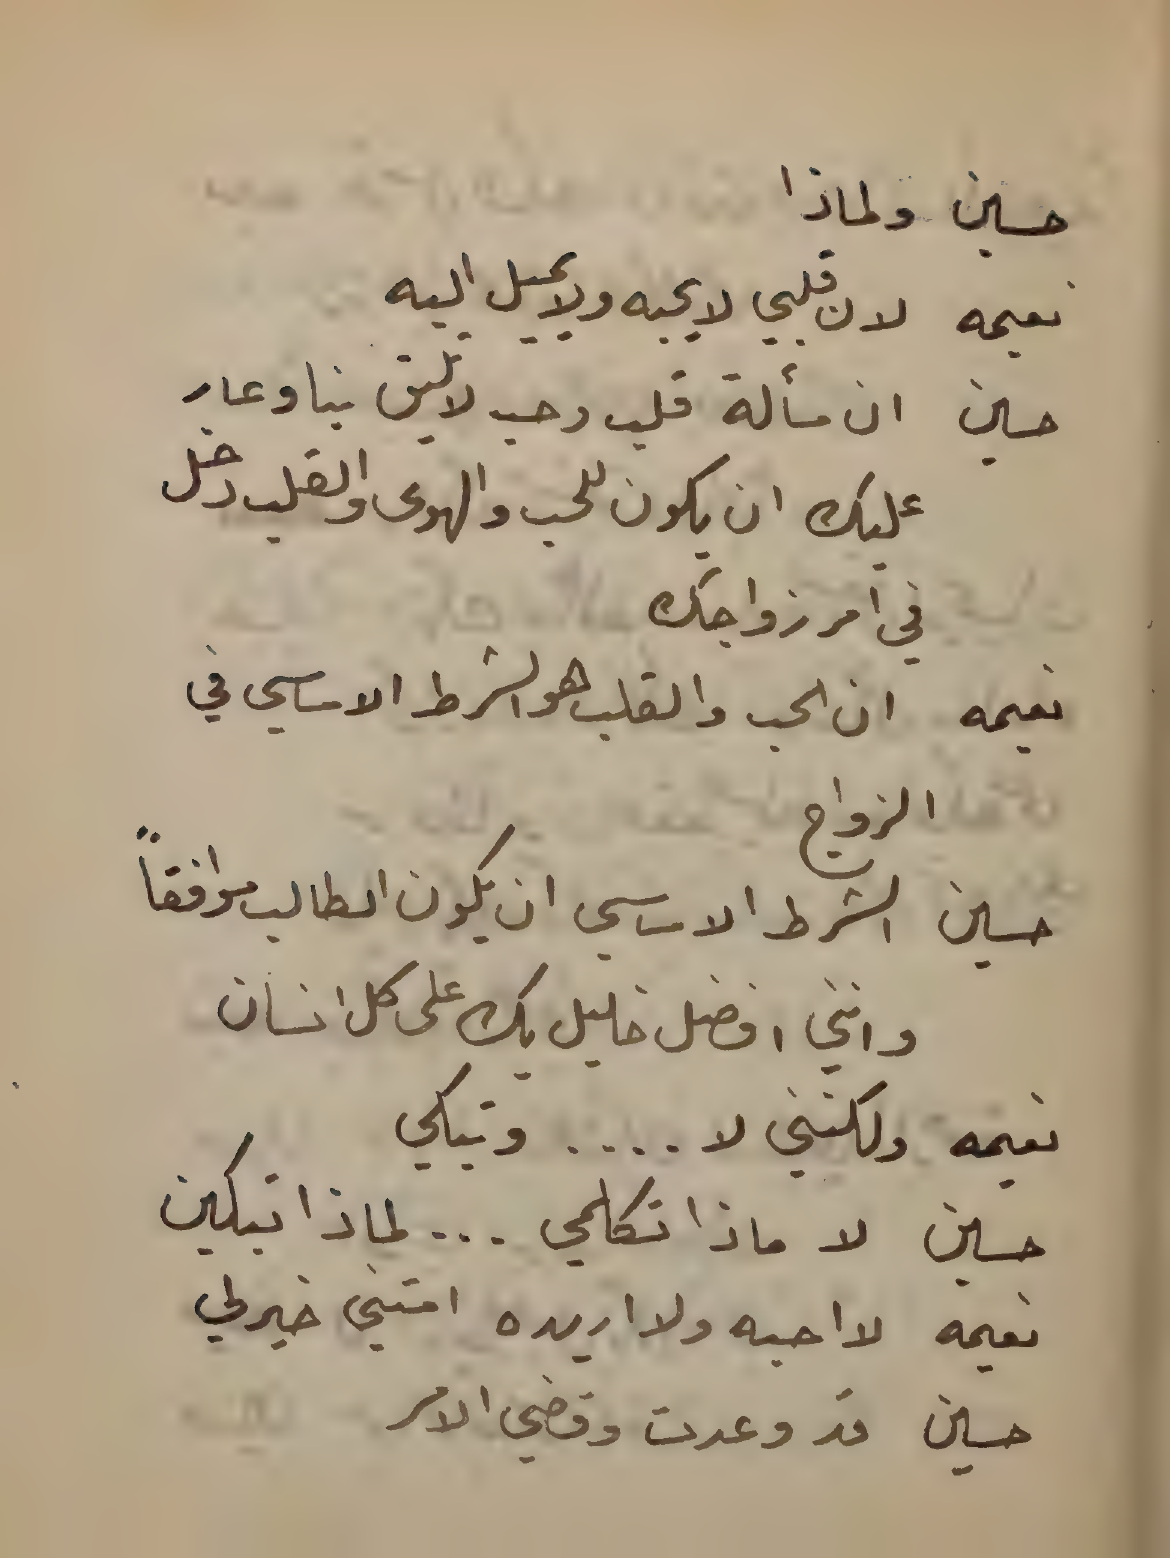 حسين ولماذا
نعيمه لان قلبي لا يحبه ولا يميل اليه
حسين ان مسألة قلب وحب لا تليق بنا وعار
عليك ان يكون للحب والهوى والقلب دخل
في امر زواجك
نعيمه ان الحب والقلب هو الشرط الاساسي في
الزواج
حسين الشرط الاساسي ان يكون الطالب موافقاً
وانني افضل خليل بك على كل انسان
نعيمه ولكنني لا .... وتبكي
حسين لا ماذا تكلمي ... لماذا تبكين
نعيمه لا احبه ولا اريده امتني خير لي
حسين قد وعدت وقضي الامر